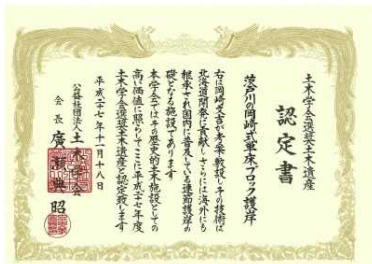 土木学会選奨土木遺産
認定書
茨戸川の岡崎式単床ブロック護岸
右は岡崎文吉が考案・敷設しその技術は
北海道開発に貢献しさらには海外にも
継承され国内に普及している連節護岸の
礎となる施設であります
本学会ではその歴史的土木施設としての
高い価値に照らしてここに平成二十七年度
土木学会選奨土木遺産と認定致します
平成二十七年十一月十八日
公益社団法人 土木学会
会長 廣瀬典昭